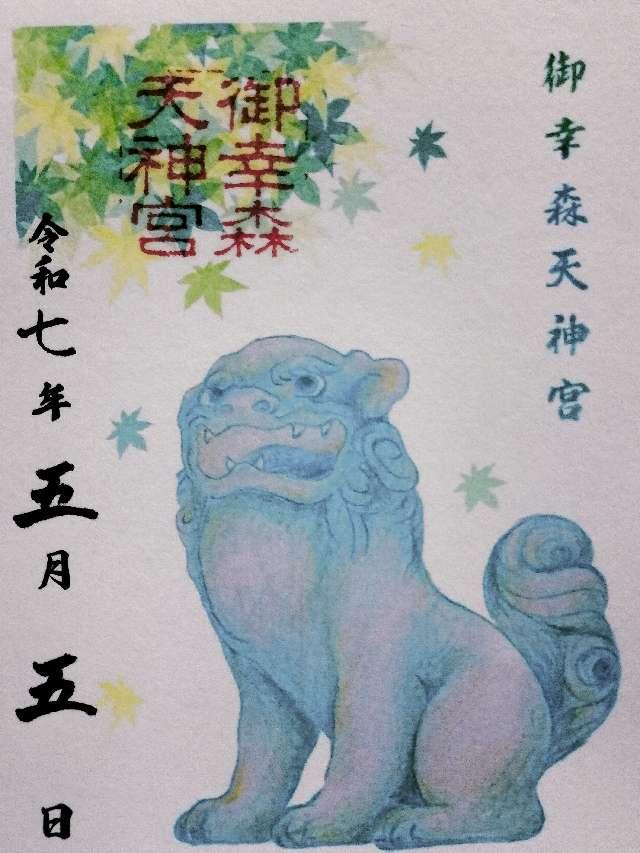 御幸森天神宮
御幸森
天神宮
令和七年五月五日